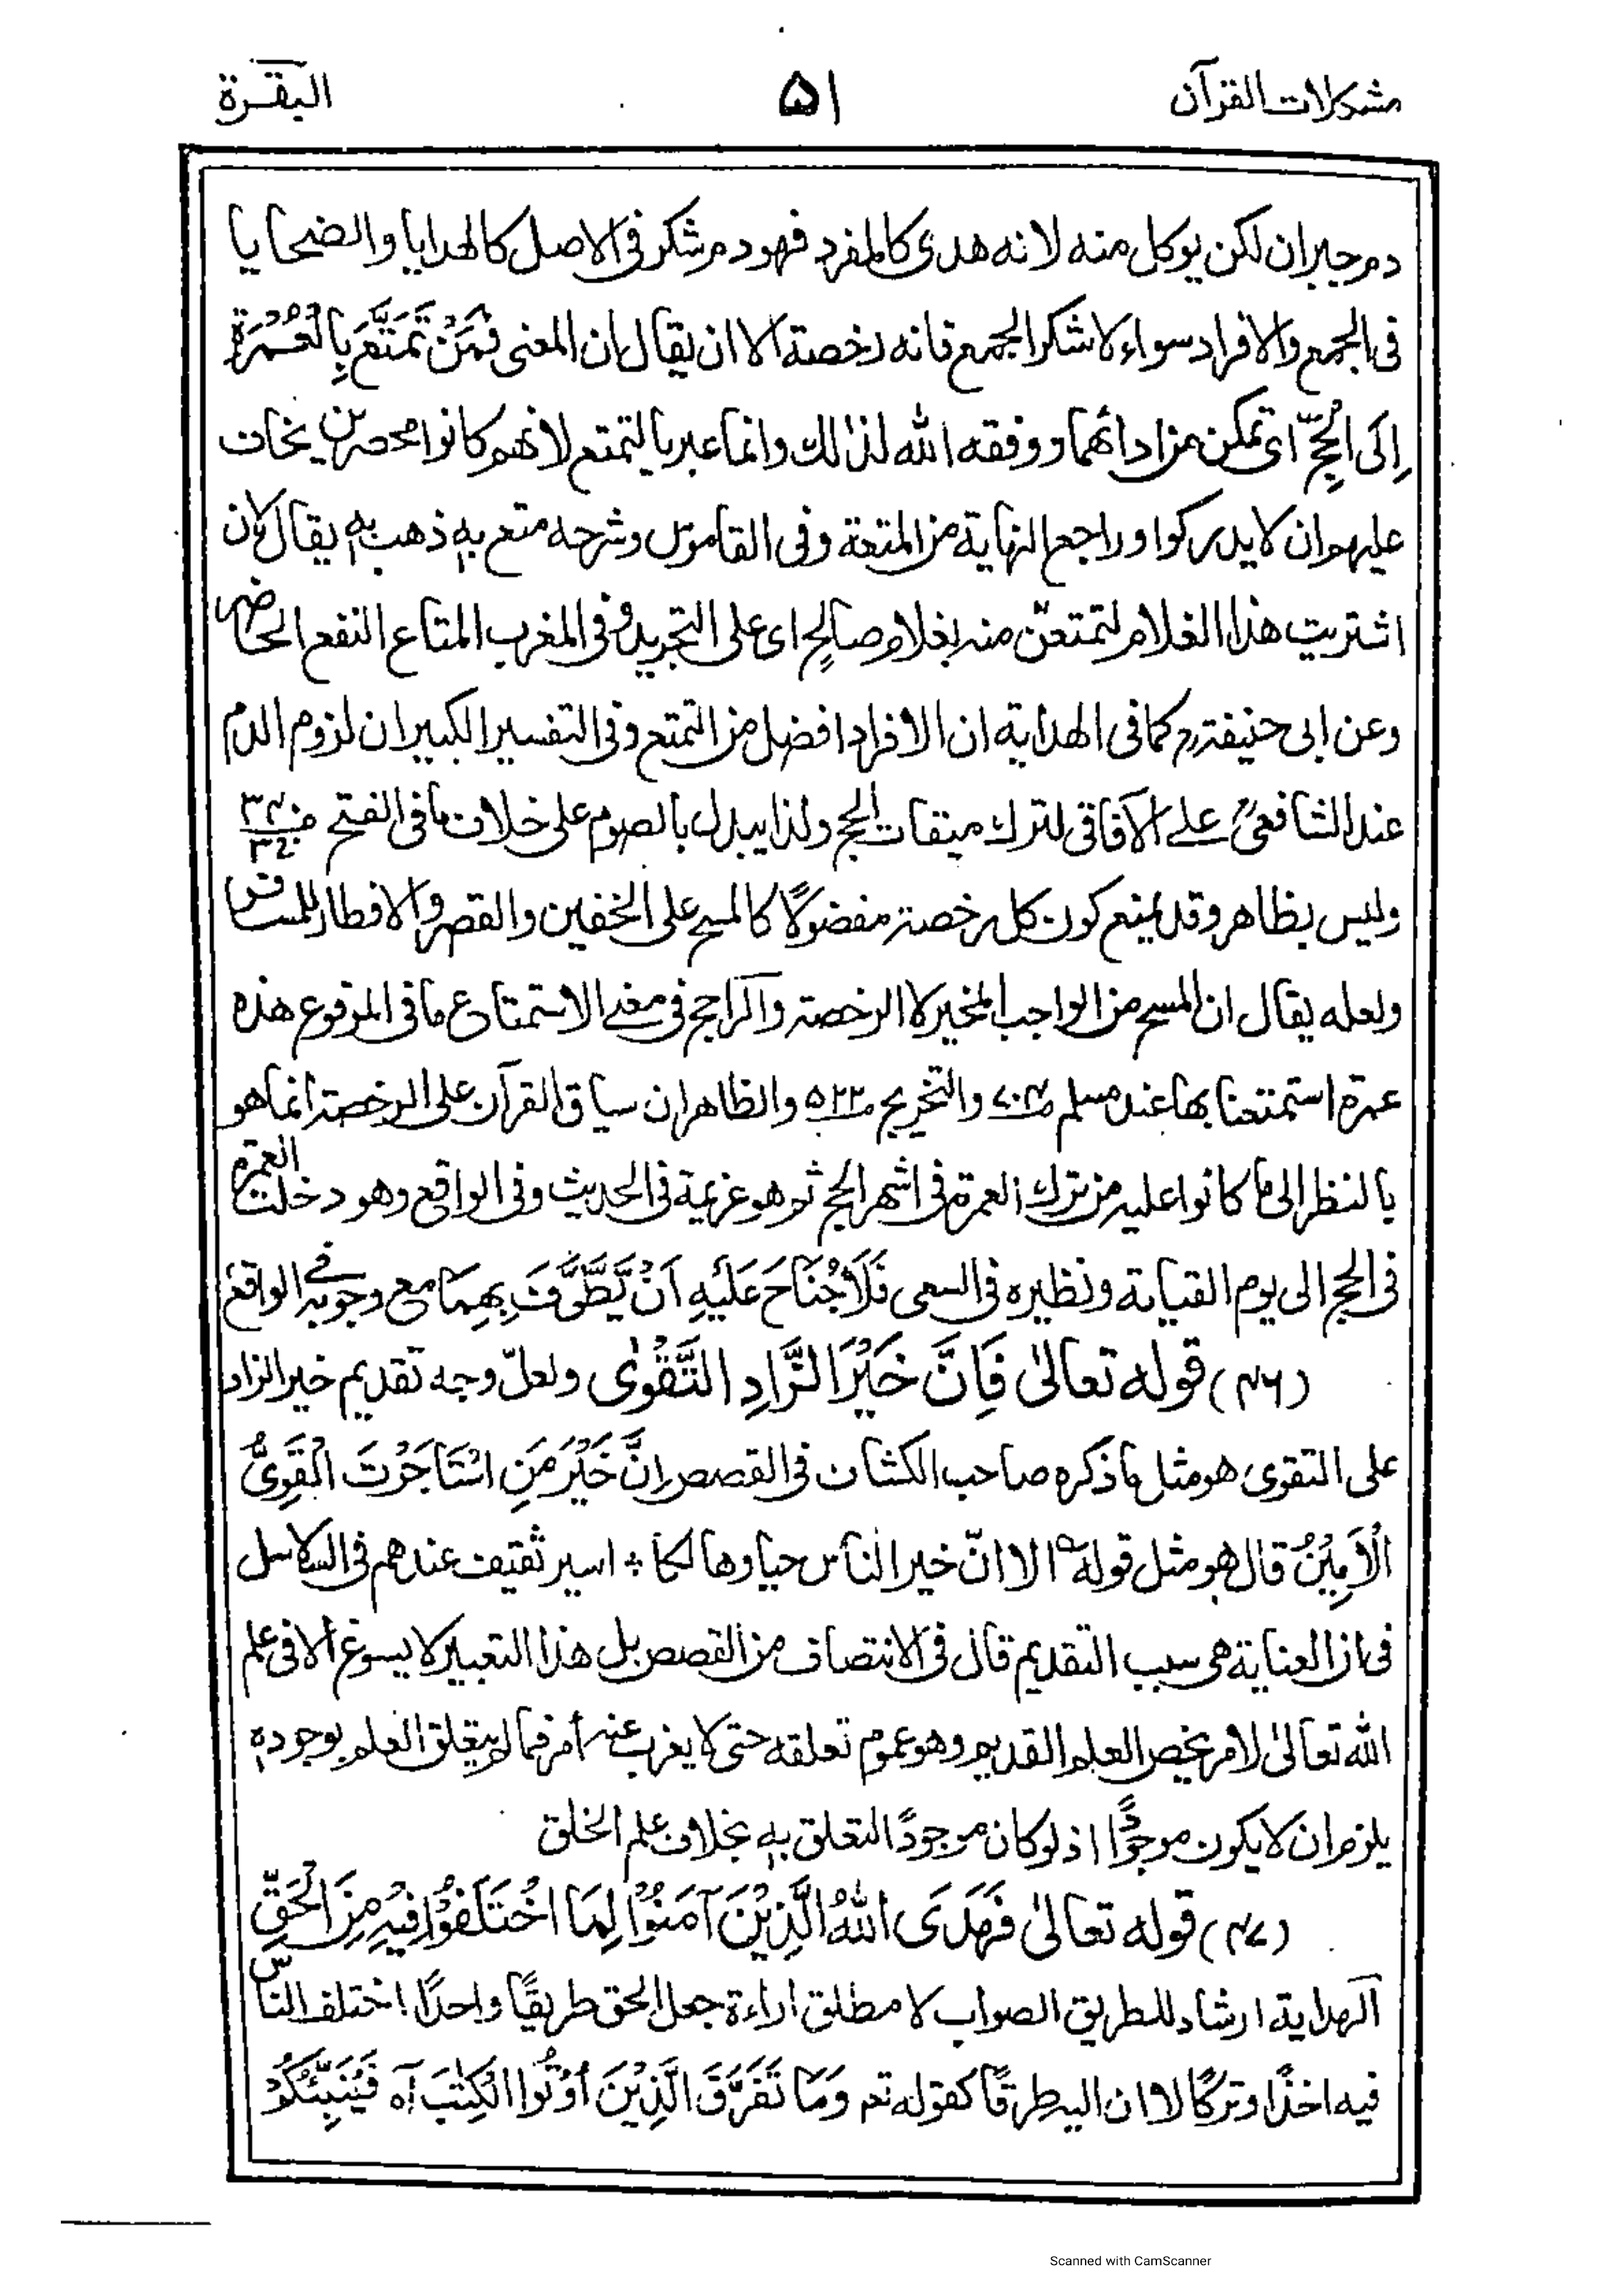 مشكلات القرآن ۵۱ البقرة
دم جبران لكن يوكل منه لانه هدى كالمفرد فهو دم شكر فى الاصل كالهدايا والضحايا
فى الجمع والافراد سواء لا شكر الجمع فانه رخصة الا ان يقال ان المعنى فَمَنْ تَمَتَّعَ بِالْعُمْرَةِ
اِلَى الْحَجِّ اى تمكن من ادائهما ووفقه الله لذالك وانما عبر بالتمتع لانهم كانوا محصرين يخاف
عليهم ان لا يدركوا وراجع النهاية من المتعة وفى القاموس وشرحه متع به ذهب به يقال لان
اشتريت هذا الغلام لتمتعنّ منه بغلام صالحٍ اى على التجريد وفى المغرب المتاع النفع الحاضر
وعن ابى حنيفةؒ كما فى الهداية ان الافراد افضل من التمتع وفى التفسير الكبير ان لزوم الدم
عند الشافعىؒ على الآفاقى لترك ميقات الحج ولذا يبدل بالصوم على خلاف ما فى الفتح
وليس بظاهر وقد يمنع كون كل رخصة مفضولًا كالمسح على الخفين والقصر والافطار للمسافر
ولعله يقال ان المسح من الواجب المخير لا الرخصة والراجح فى معنى الاستمتاع ما فى المرفوع هذه
عمرة استمتعنا بها عند مسلم والتخريج والظاهر ان سياق القرآن على الرخصة انما هو
بالنظر الى ما كانوا عليه من ترك العمرة فى اشهر الحج ثم هو عزيمة فى الحديث وفى الواقع وهو دخلت العمرة
فى الحج الى يوم القيامة ونظيره فى السعى فَلَا جُنَاحَ عَلَيْهِ اَنْ يَّطَّوَّفَ بِهِمَا مع وجوبه فى الواقع
(۴۶) قوله تعالىٰ فَاِنَّ خَيْرَ الزَّادِ التَّقْوٰى ولعلّ وجه تقديم خير الزاد
على التقوى هو مثل ما ذكره صاحب الكشاف فى القصص اِنَّ خَيْرَ مَنِ اسْتَاْجَرْتَ الْقَوِىُّ
الْاَمِيْنُ قال هو مثل قوله الا انّ خير الناس حيا وهالكا * اسير ثقيف عندهم فى السلاسل
فى ان العناية هى سبب التقديم قال فى الانتصاف من القصص بل هذا التعبير لا يسوغ الا فى علم
الله تعالىٰ لامر يخص العلم القديم وهو عموم تعلقه حتى لا يعزب عنه أمر فما لم يتعلق العلم بوجوده
يلزم ان لا يكون موجودًا اذ لو كان موجودًا لتعلق به بخلاف علم الخلق
(۴۷) قوله تعالىٰ فَهَدَى اللهُ الَّذِيْنَ آمَنُوْا لِمَا اخْتَلَفُوْا فِيْهِ مِنَ الْحَقِّ
الهداية ارشاد للطريق الصواب لا مطلق اراءة جعل الحق طريقًا واحدًا اختلف الناس
فيه اخذًا وتركًا لا ان اليه طرقًا كقوله تعـ وَمَا تَفَرَّقَ الَّذِيْنَ اُوْتُوا الْكِتٰبَ آه فَيُنَبِّئُكُمْ
Scanned with CamScanner